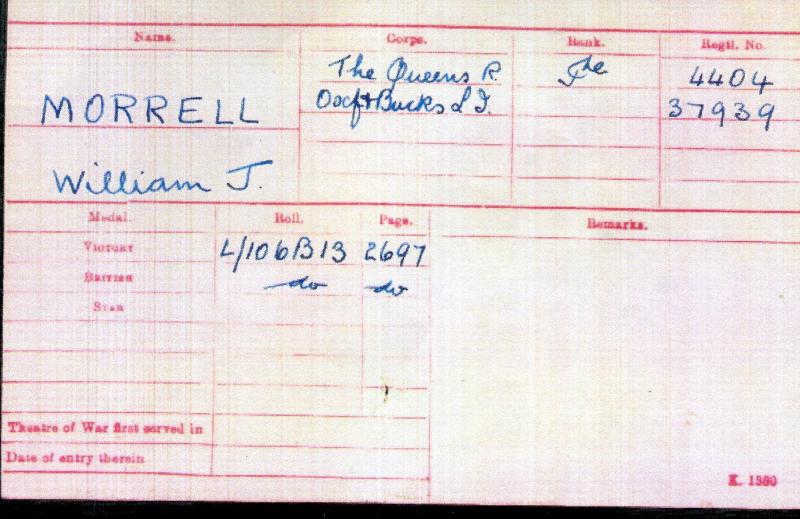 Name. Corps. Rank. Regtl. No.
The Queens R. Pte 4404
MORRELL Oxf & Bucks L I. 37939
William J.
Medal. Roll. Page. Remarks.
VICTORY L/106B13 2697
BRITISH do do
STAR
Theatre of War first served in
Date of entry therein
K. 1380